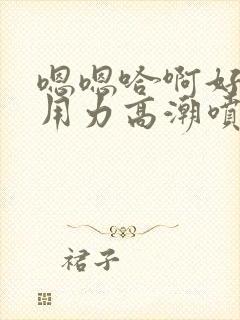 嗯嗯哈啊好
用力高潮噴
裙子